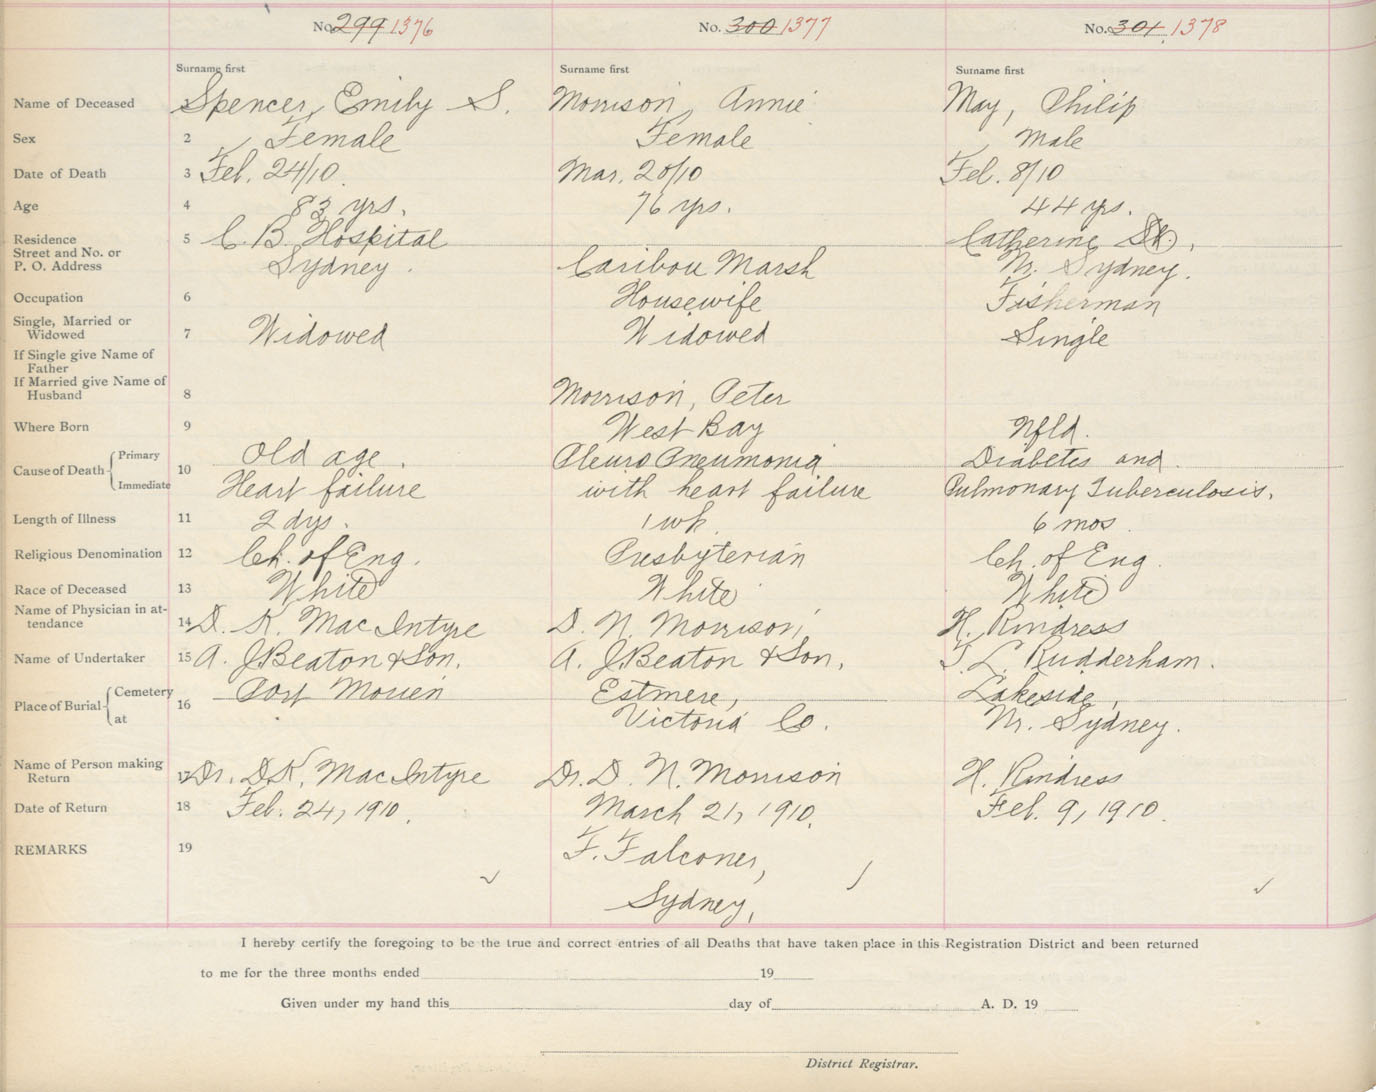 No. 299 1376 No. 300 1377 No. 301 1378
Surname first Surname first Surname first
Name of Deceased 1 Spencer, Emily S. Morrison, Annie May, Philip
Sex 2 Female Female Male
Date of Death 3 Feb. 24/10. Mar. 20/10 Feb. 8/10
Age 4 83 yrs. 76 yrs. 44 yrs.
Residence 5 C. B. Hospital Catherine St.,
Street and No. or
P. O. Address Sydney. Caribou Marsh Nr. Sydney.
Occupation 6 Housewife Fisherman
Single, Married or
Widowed 7 Widowed Widowed Single
If Single give Name of
Father
If Married give Name of
Husband 8 Morrison, Peter
Where Born 9 West Bay Nfld.
Cause of Death Primary 10 Old age. Pleuro Pneumonia Diabetes and
Immediate Heart failure with heart failure Pulmonary Tuberculosis.
Length of Illness 11 2 dys. 1 wk. 6 mos.
Religious Denomination 12 Ch. of Eng. Presbyterian Ch. of Eng.
Race of Deceased 13 White White White
Name of Physician in at-
tendance 14 D. K. MacIntyre D. N. Morrison, H. Rindress
Name of Undertaker 15 A. J. Beaton & Son. A. J. Beaton & Son. L. Rudderham.
Place of Burial Cemetery 16 Port Morien Estmere, Lakeside,
at Victoria Co. Nr. Sydney.
Name of Person making
Return 17 Dr. D. K. MacIntyre Dr. D. N. Morrison H. Rindress
Date of Return 18 Feb. 24, 1910. March 21, 1910. Feb. 9, 1910.
REMARKS 19 F. Falconer,
Sydney,
I hereby certify the foregoing to be the true and correct entries of all Deaths that have taken place in this Registration District and been returned
to me for the three months ended 19
Given under my hand this day of A. D. 19
District Registrar.